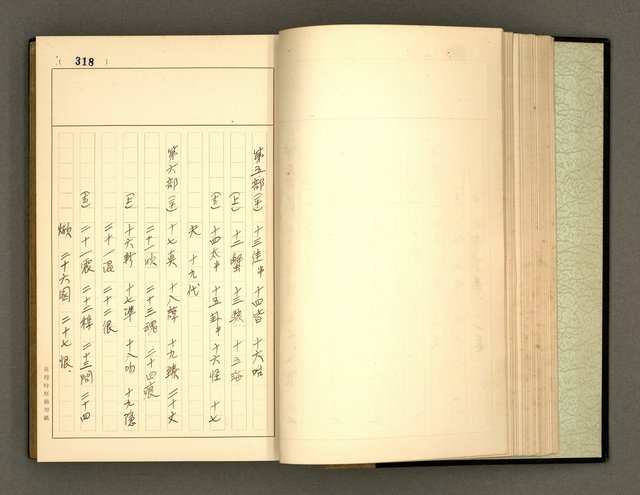 ( 318 )
第五部(平) 十三佳半 十四皆 十六咍
(上) 十二蟹 十三駭 十五海
(去) 十四太半 十五卦半 十六怪 十七
夬 十九代
第六部(平) 十七真 十八諄 十九臻 二十文
二十一欣 二十三魂 二十四痕
(上) 十六軫 十七準 十八吻 十九隱
二十一混 二十二很
(去) 二十一震 二十二稕 二十三問 二十四
焮 二十六圂 二十七恨.
黃得時原稿用紙